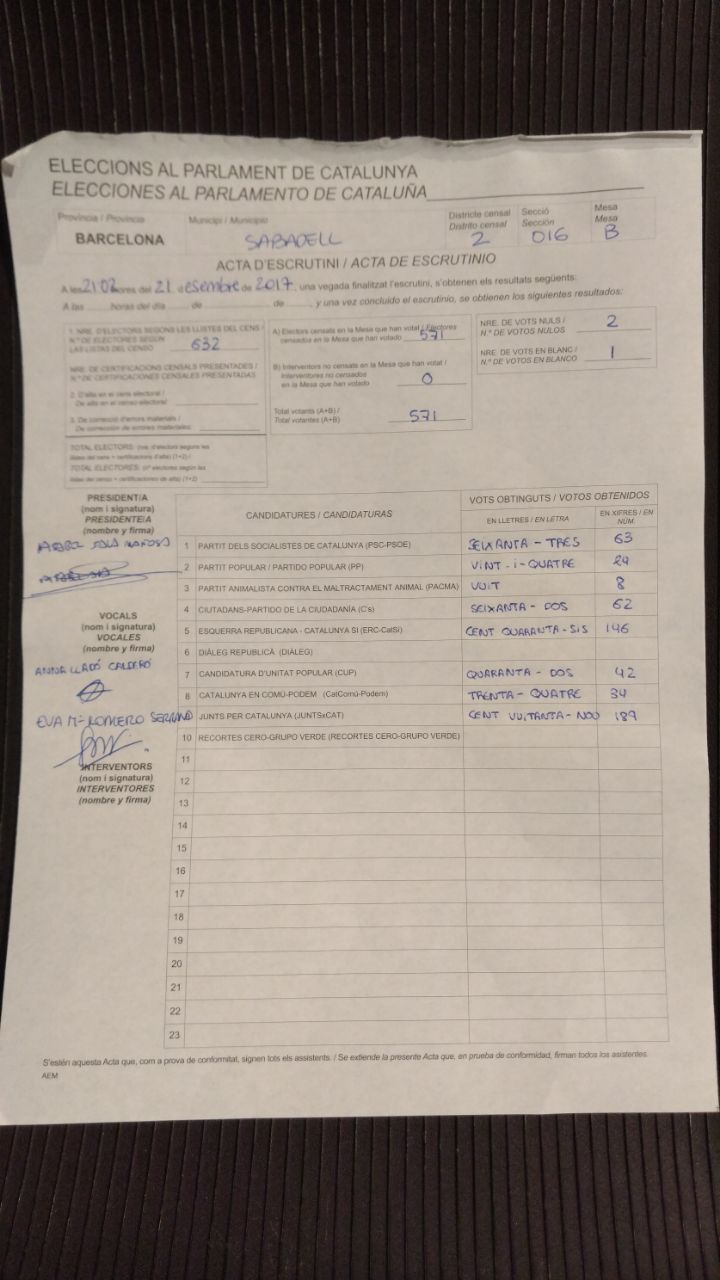 ELECCIONS AL PARLAMENT DE CATALUNYA
ELECCIONES AL PARLAMENTO DE CATALUÑA
Província / Provincia Municipi / Municipio Districte censal Secció Mesa
Distrito censal Sección Mesa
BARCELONA SABADELL 2 016 B
ACTA D'ESCRUTINI / ACTA DE ESCRUTINIO
A les 21:02 hores del 21 desembre de 2017, una vegada finalitzat l'escrutini, s'obtenen els resultats següents:
A las horas del día de de , y una vez concluido el escrutinio, se obtienen los siguientes resultados:
1. NRE. D'ELECTORS SEGONS LES LLISTES DEL CENS /
N.º DE ELECTORES SEGÚN
LAS LISTAS DEL CENSO 632
NRE. DE CERTIFICACIONS CENSALS PRESENTADES /
N.º DE CERTIFICACIONES CENSALES PRESENTADAS
2. D'alta en el cens electoral /
De alta en el censo electoral
3. De correcció d'errors materials /
De corrección de errores materiales
TOTAL ELECTORS: (nre. d'electors segons les
llistes del cens + certificacions d'alta) (1+2) /
TOTAL ELECTORES: (nº electores según las
listas del censo + certificaciones de alta) (1+2)
A) Electors censats en la Mesa que han votat / Electores
censados en la Mesa que han votado 571
B) Interventors no censats en la Mesa que han votat /
Interventores no censados
en la Mesa que han votado 0
Total votants (A+B) /
Total votantes (A+B) 571
NRE. DE VOTS NULS /
N.º DE VOTOS NULOS 2
NRE. DE VOTS EN BLANC /
N.º DE VOTOS EN BLANCO 1
PRESIDENT/A
(nom i signatura)
PRESIDENTE/A
(nombre y firma)
VOCALS
(nom i signatura)
VOCALES
(nombre y firma)
ANNA LLADÓ CALDERÓ
EVA Mª ROMERO SERRANO
INTERVENTORS
(nom i signatura)
INTERVENTORES
(nombre y firma)
CANDIDATURES / CANDIDATURAS VOTS OBTINGUTS / VOTOS OBTENIDOS
EN LLETRES / EN LETRA EN XIFRES / EN NÚM.
1 PARTIT DELS SOCIALISTES DE CATALUNYA (PSC-PSOE) SEIXANTA - TRES 63
2 PARTIT POPULAR / PARTIDO POPULAR (PP) VINT - i - QUATRE 24
3 PARTIT ANIMALISTA CONTRA EL MALTRACTAMENT ANIMAL (PACMA) VUIT 8
4 CIUTADANS-PARTIDO DE LA CIUDADANÍA (C's) SEIXANTA - DOS 62
5 ESQUERRA REPUBLICANA - CATALUNYA SÍ (ERC-CatSí) CENT QUARANTA - SIS 146
6 DIÀLEG REPUBLICÀ (DIÀLEG)
7 CANDIDATURA D'UNITAT POPULAR (CUP) QUARANTA - DOS 42
8 CATALUNYA EN COMÚ-PODEM (CatComú-Podem) TRENTA - QUATRE 34
9 JUNTS PER CATALUNYA (JUNTSxCAT) CENT VUITANTA - NOU 189
10 RECORTES CERO-GRUPO VERDE (RECORTES CERO-GRUPO VERDE)
11
12
13
14
15
16
17
18
19
20
21
22
23
S'estén aquesta Acta que, com a prova de conformitat, signen tots els assistents. / Se extiende la presente Acta que, en prueba de conformidad, firman todos los asistentes.
AEM